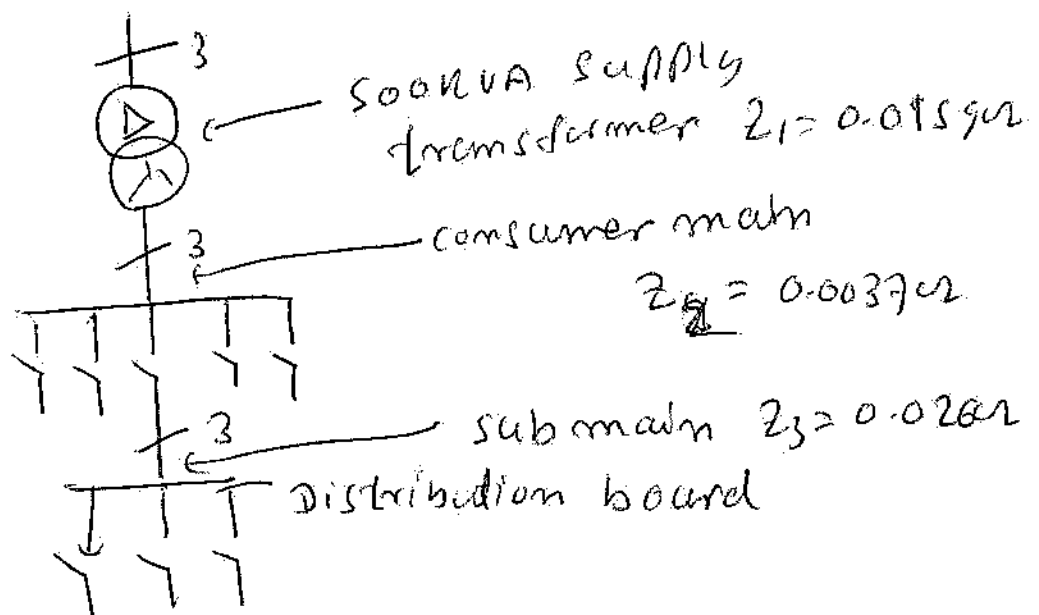 3
500KVA supply
transformer Z₁ = 0.0159Ω
3
consumer main
Z₂ = 0.0037Ω
3
submain Z₃ = 0.026Ω
Distribution board